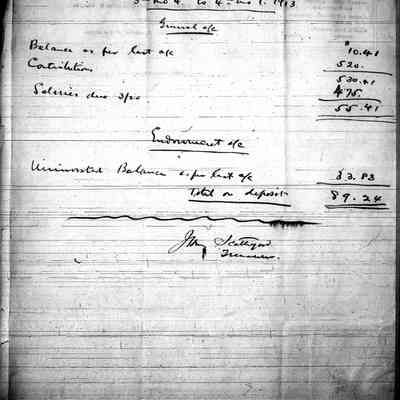 to 4 no 1. 1913
General a/c
Balance as per last a/c $10.41
Contributions 520.
530.41
Salaries due 475.
55.41
Endowment a/c
Uninvested Balance as per last a/c 33.83
Total on deposit 89.24
Treasurer.